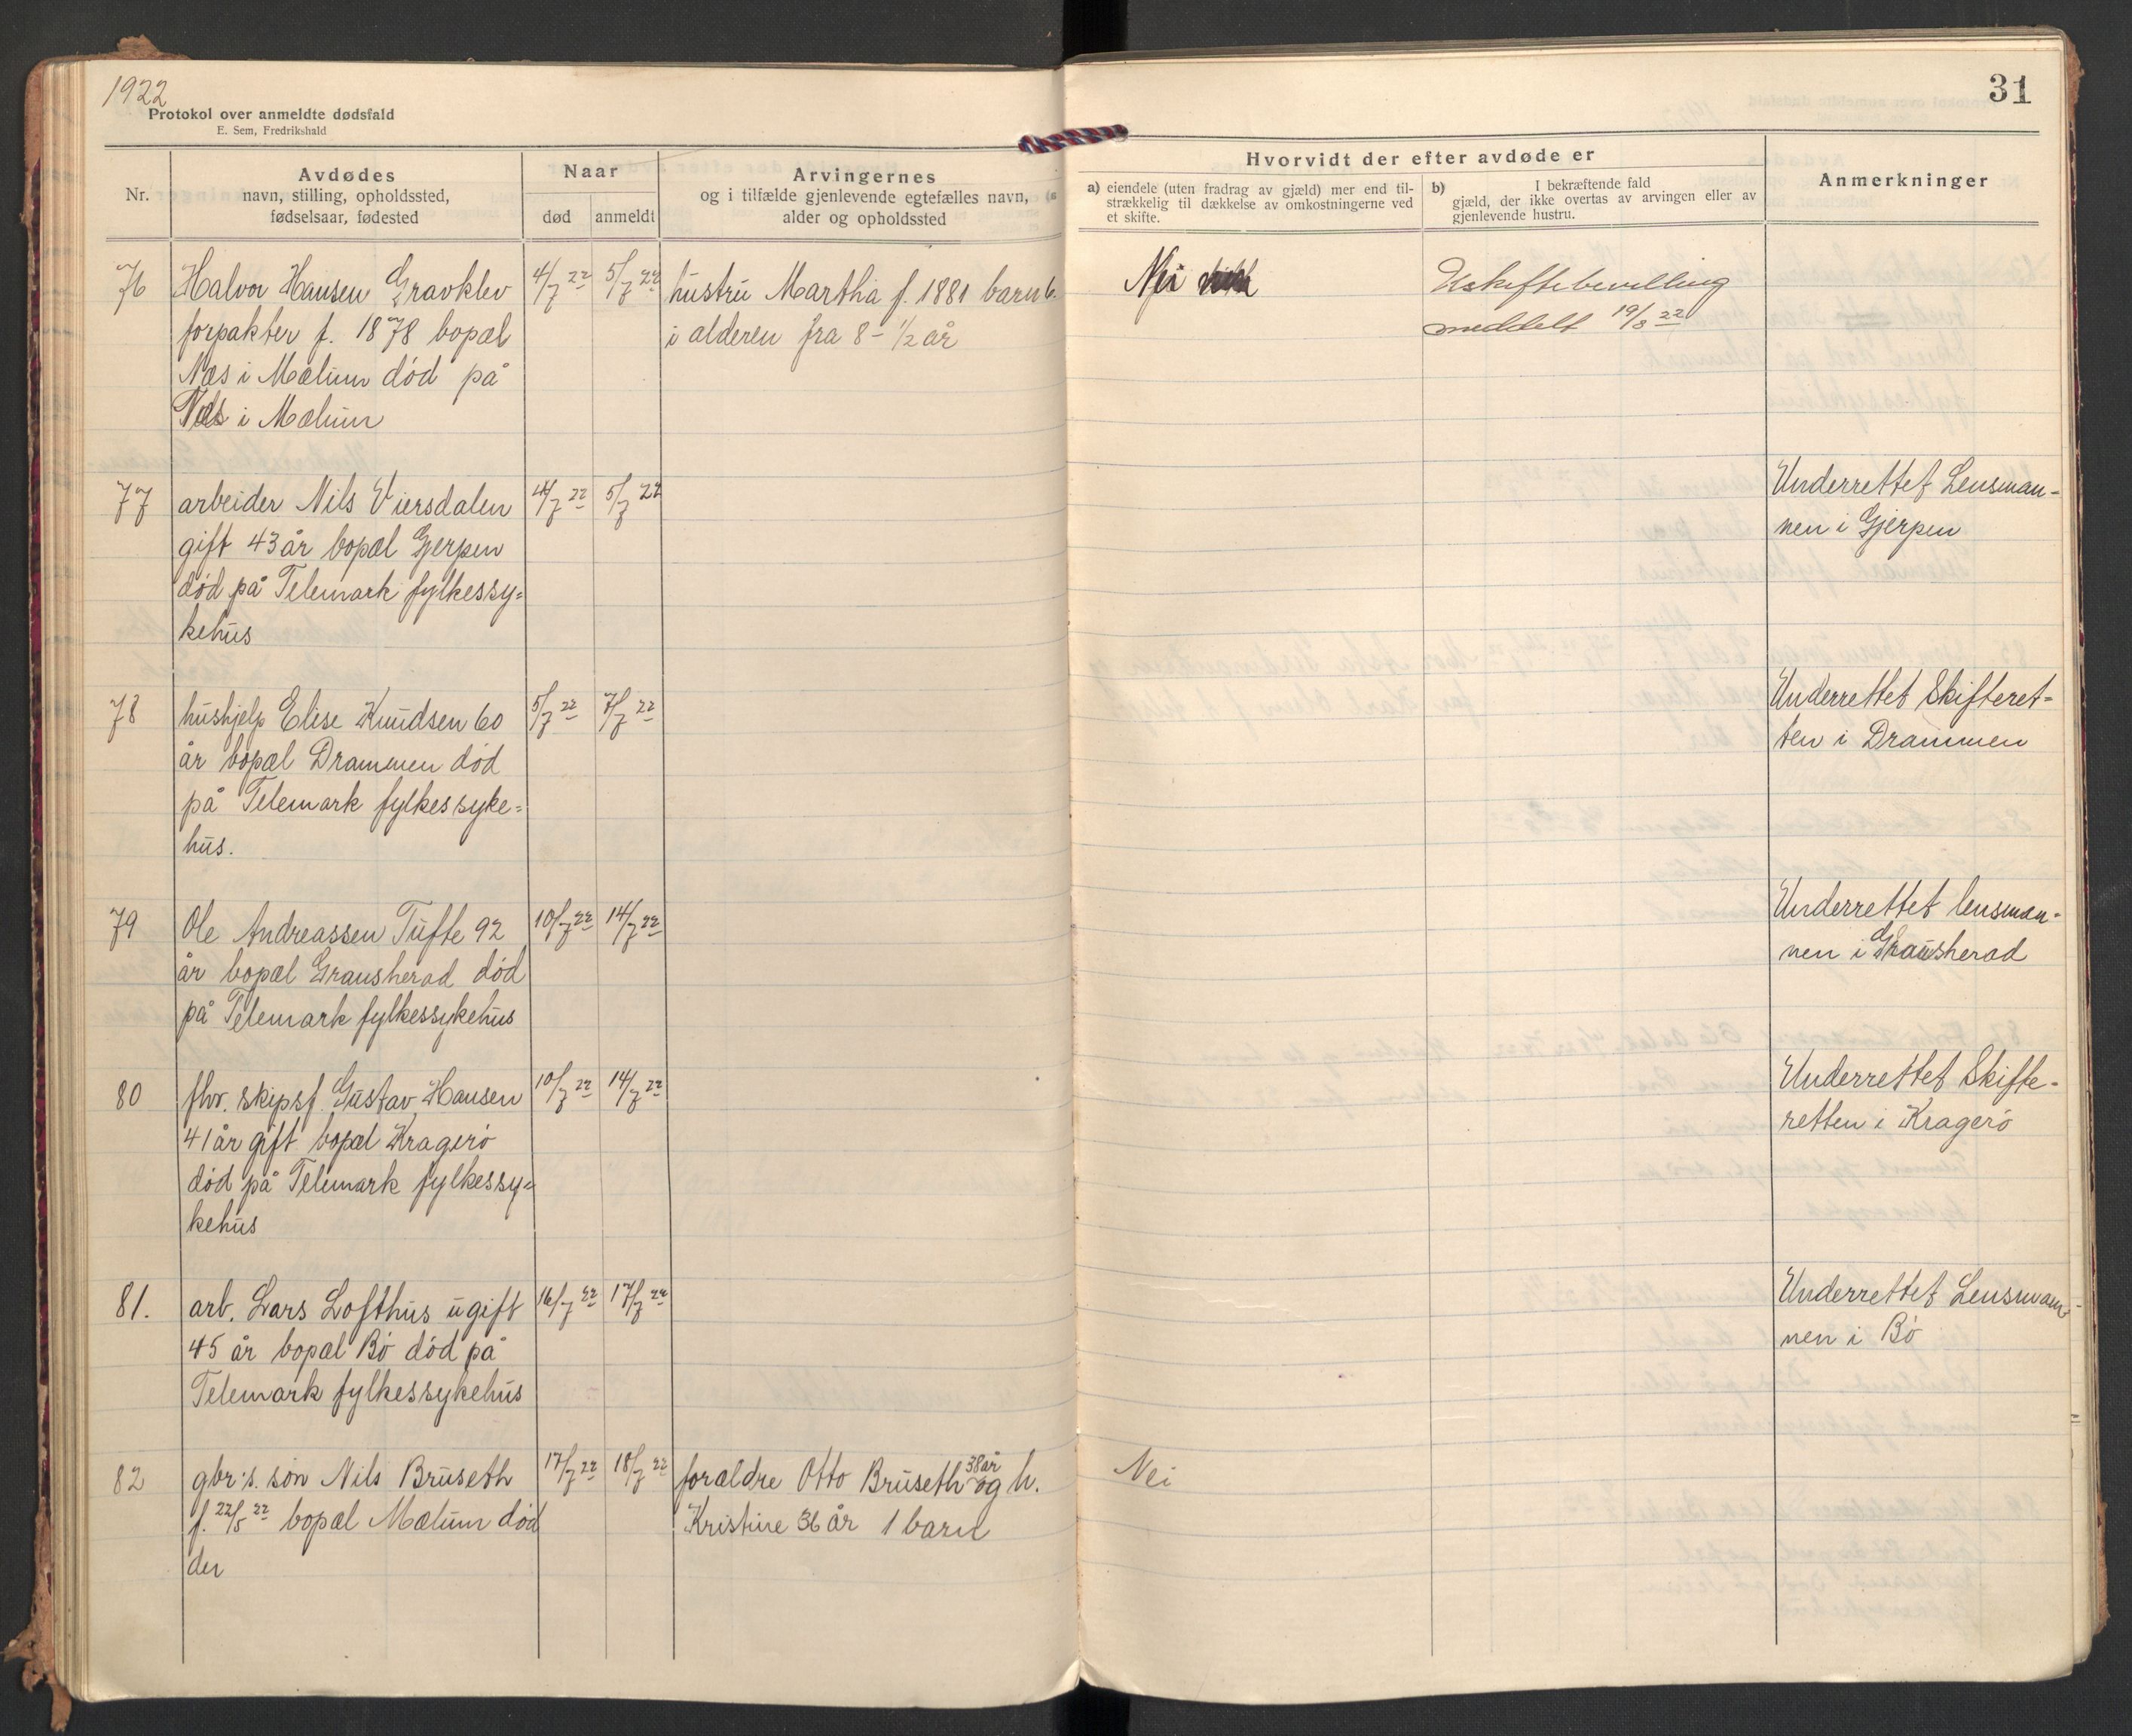 1922
Protokol over anmeldte dødsfald
E. Sem, Fredrikshald
31
Nr.
Avdødes
navn, stilling, opholdssted,
fødselsaar, fødested
Naar
død
anmeldt
Arvingernes
og i tilfælde gjenlevende egtefælles navn,
alder og opholdssted
Hvorvidt der efter avdøde er
a) eiendele (uten fradrag av gjæld) mer end til-
strækkelig til dækkelse av omkostningerne ved
et skifte.
b) I bekræftende fald
gjæld, der ikke overtas av arvingen eller av
gjenlevende hustru.
Anmerkninger
76 Halvor Hansen Gravklev 4/7 22 5/7 22 hustru Martha f. 1881 barn 6. Nei Uskiftebevilling
forpakter f. 1878 bopæl i alderen fra 8 - 1/2 år meddelt 19/8 22
Næs i Mælum død på
Næs i Mælum
77 arbeider Nils Viersdalen 4/7 22 5/7 22 Underrettet Lensman-
gift 43 år bopæl Gjerpen nen i Gjerpen
død på Telemark fylkessy-
kehus
78 hushjelp Elise Knudsen 60 5/7 22 7/7 22 Underrettet Skifteret-
år bopæl Drammen død ten i Drammen
på Telemark fylkessyke-
hus.
79 Ole Andreassen Tufte 92 10/7 22 14/7 22 Underrettet lensman-
år bopæl Gransherad død nen i Gransherad
på Telemark fylkessykehus
80 fhv. skipsf. Gustav Hansen 10/7 22 14/7 22 Underrettet Skifte-
41 år gift bopæl Kragerø retten i Kragerø
død på Telemark fylkessy-
kehus
81. arb. Lars Lofthus ugift 16/7 22 17/7 22 Underrettet Lensman-
45 år bopæl Bø død på nen i Bø
Telemark fylkessykehus
82 gbr:s. søn Nils Bruseth 17/7 22 18/7 22 forældre Otto Bruseth 38 år og h. Nei
f. 22/5 22 bopæl Mælum død Kristine 36 år 1 barn
der